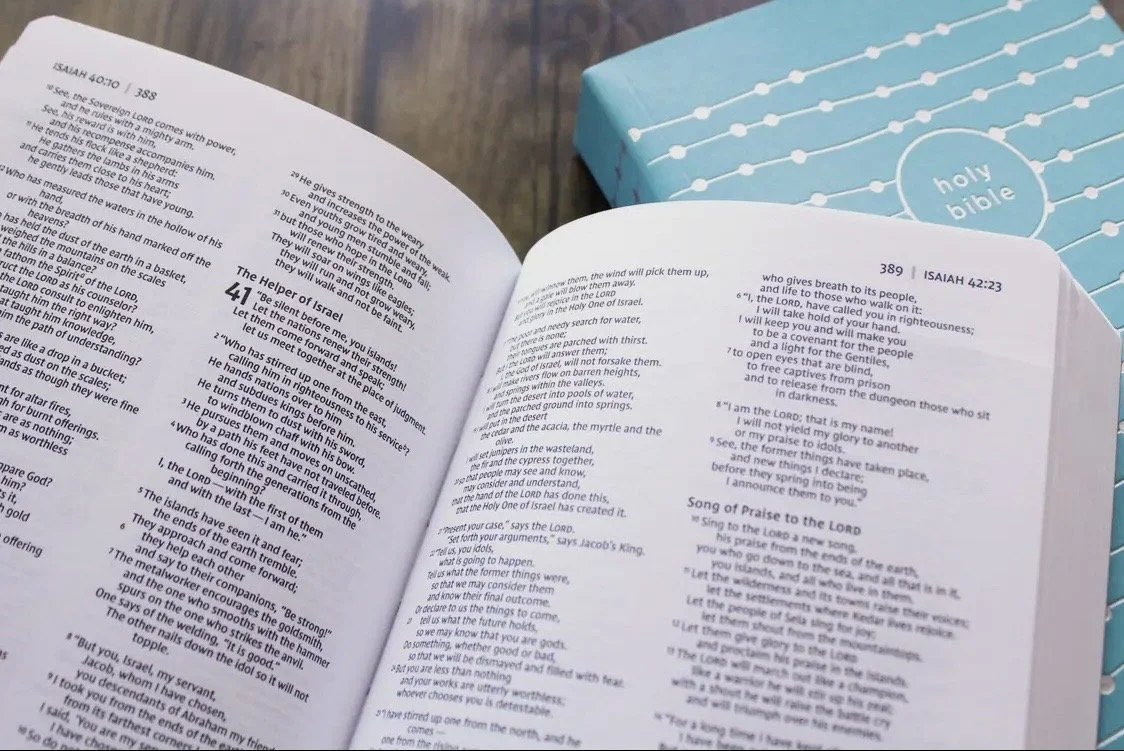 ISAIAH 40:10 | 388
10 See, the Sovereign LORD comes with power,
and he rules with a mighty arm.
See, his reward is with him,
and his recompense accompanies him.
11 He tends his flock like a shepherd:
He gathers the lambs in his arms
and carries them close to his heart;
he gently leads those that have young.
12 Who has measured the waters in the hollow of his
hand,
or with the breadth of his hand marked off the
heavens?
has held the dust of the earth in a basket,
weighed the mountains on the scales
the hills in a balance?
fathom the Spirit of the LORD,
ruct the LORD as his counselor?
the LORD consult to enlighten him,
taught him the right way?
at taught him knowledge,
him the path of understanding?
s are like a drop in a bucket;
ed as dust on the scales;
ands as though they were fine
nt for altar fires,
gh for burnt offerings.
s are as nothing;
m as worthless
mpare God?
him?
ts it,
h gold
offering
29 He gives strength to the weary
and increases the power of the weak.
30 Even youths grow tired and weary,
and young men stumble and fall;
31 but those who hope in the LORD
will renew their strength.
They will soar on wings like eagles;
they will run and not grow weary,
they will walk and not be faint.
The Helper of Israel
41 "Be silent before me, you islands!
Let the nations renew their strength!
Let them come forward and speak;
let us meet together at the place of judgment.
2 "Who has stirred up one from the east,
calling him in righteousness to his service?
He hands nations over to him
and subdues kings before him.
He turns them to dust with his sword,
to windblown chaff with his bow.
3 He pursues them and moves on unscathed,
by a path his feet have not traveled before.
4 Who has done this and carried it through,
calling forth the generations from the
beginning?
I, the LORD — with the first of them
and with the last — I am he."
5 The islands have seen it and fear;
the ends of the earth tremble.
They approach and come forward;
6 they help each other
and say to their companions, "Be strong!"
7 The metalworker encourages the goldsmith,
and the one who smooths with the hammer
spurs on the one who strikes the anvil.
One says of the welding, "It is good."
The other nails down the idol so it will not
topple.
8 "But you, Israel, my servant,
Jacob, whom I have chosen,
you descendants of Abraham my friend
9 I took you from the ends of the earth
from its farthest corners I
I said, 'You are my ser
I have chosen
10 So do not
389 | ISAIAH 42:23
winnow them, the wind will pick them up,
and a gale will blow them away.
But you will rejoice in the LORD
and glory in the Holy One of Israel.
"The poor and needy search for water,
but there is none;
their tongues are parched with thirst.
But I the LORD will answer them;
I, the God of Israel, will not forsake them.
I will make rivers flow on barren heights,
and springs within the valleys.
I will turn the desert into pools of water,
and the parched ground into springs.
I will put in the desert
the cedar and the acacia, the myrtle and the
olive.
I will set junipers in the wasteland,
the fir and the cypress together,
so that people may see and know,
may consider and understand,
that the hand of the LORD has done this,
that the Holy One of Israel has created it.
21 "Present your case," says the LORD.
"Set forth your arguments," says Jacob's King.
22 "Tell us, you idols,
what is going to happen.
Tell us what the former things were,
so that we may consider them
and know their final outcome.
Or declare to us the things to come,
23 tell us what the future holds,
so we may know that you are gods.
Do something, whether good or bad,
so that we will be dismayed and filled with fear.
24 But you are less than nothing
and your works are utterly worthless;
whoever chooses you is detestable.
25 "I have stirred up one from the north, and he
comes —
one from the rising
who gives breath to its people,
and life to those who walk on it:
6 "I, the LORD, have called you in righteousness;
I will take hold of your hand.
I will keep you and will make you
to be a covenant for the people
and a light for the Gentiles,
7 to open eyes that are blind,
to free captives from prison
and to release from the dungeon those who sit
in darkness.
8 "I am the LORD; that is my name!
I will not yield my glory to another
or my praise to idols.
9 See, the former things have taken place,
and new things I declare;
before they spring into being
I announce them to you."
Song of Praise to the LORD
10 Sing to the LORD a new song,
his praise from the ends of the earth,
you who go down to the sea, and all that is in it,
you islands, and all who live in them.
11 Let the wilderness and its towns raise their voices;
let the settlements where Kedar lives rejoice.
Let the people of Sela sing for joy;
let them shout from the mountaintops.
12 Let them give glory to the LORD
and proclaim his praise in the islands.
13 The LORD will march out like a champion,
like a warrior he will stir up his zeal;
with a shout he will raise the battle cry
and will triumph over his enemies.
14 "For a long time I have kept
holy
bible